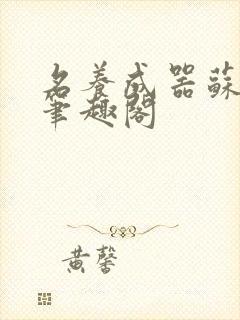 名养成器蘇
筆趣閣
黄馨